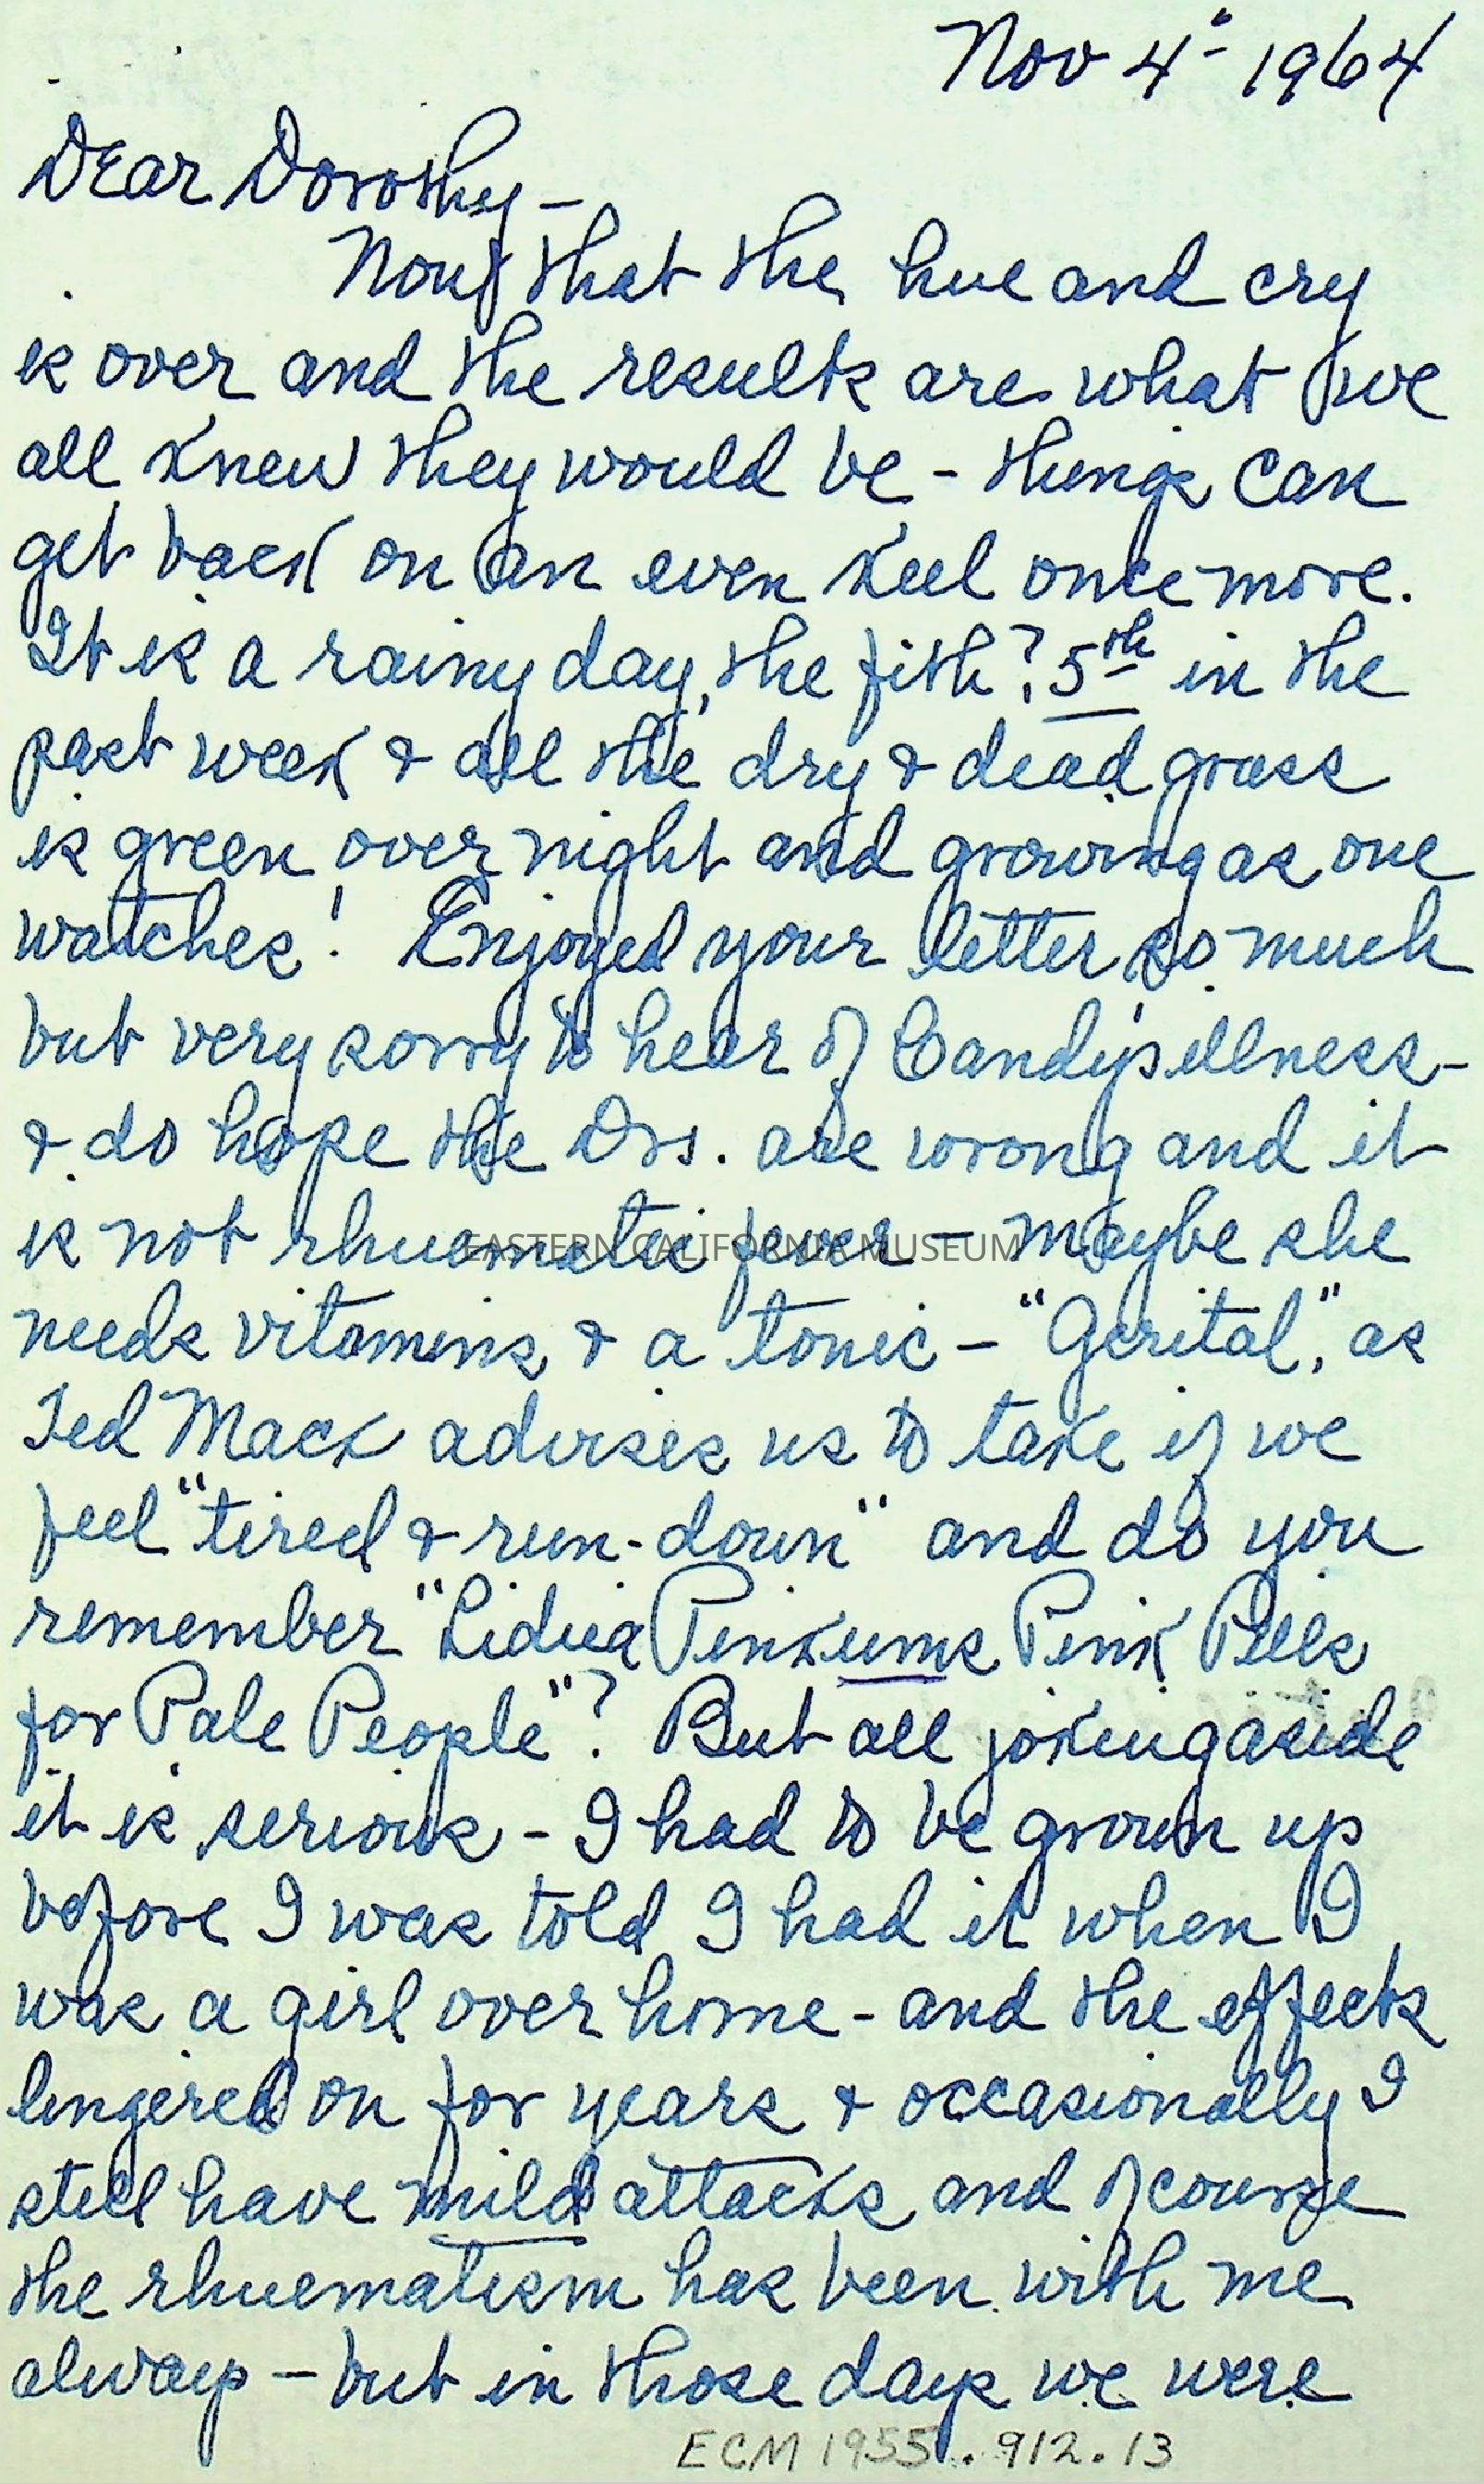 Nov 4- 1964
Dear Dorothy -
Now that the hue and cry
is over and the results are what we
all knew they would be - things can
get back on an even keel once more.
It is a rainy day, the fith? 5th in the
past week & all the dry & dead grass
is green over night and growing as one
watches! Enjoyed your letter so much
but very sorry to hear of Candy's illness -
& do hope the Drs. are wrong and it
is not rhuematic fever - maybe she
EASTERN CALIFORNIA MUSEUM
needs vitamins & a tonic - "Gerital," as
Ted Mack advises us to take if we
feel "tired & run-down" and do you
remember "Lidiia Pinkums Pink Pills
for Pale People"? But all joking aside
it is serious - I had to be grown up
before I was told I had it when I
was a girl over home - and the effects
lingered on for years & occasionally I
still have mild attacks and of course
the rhuematism has been with me
always - but in those days we were
ECM 1955.912.13